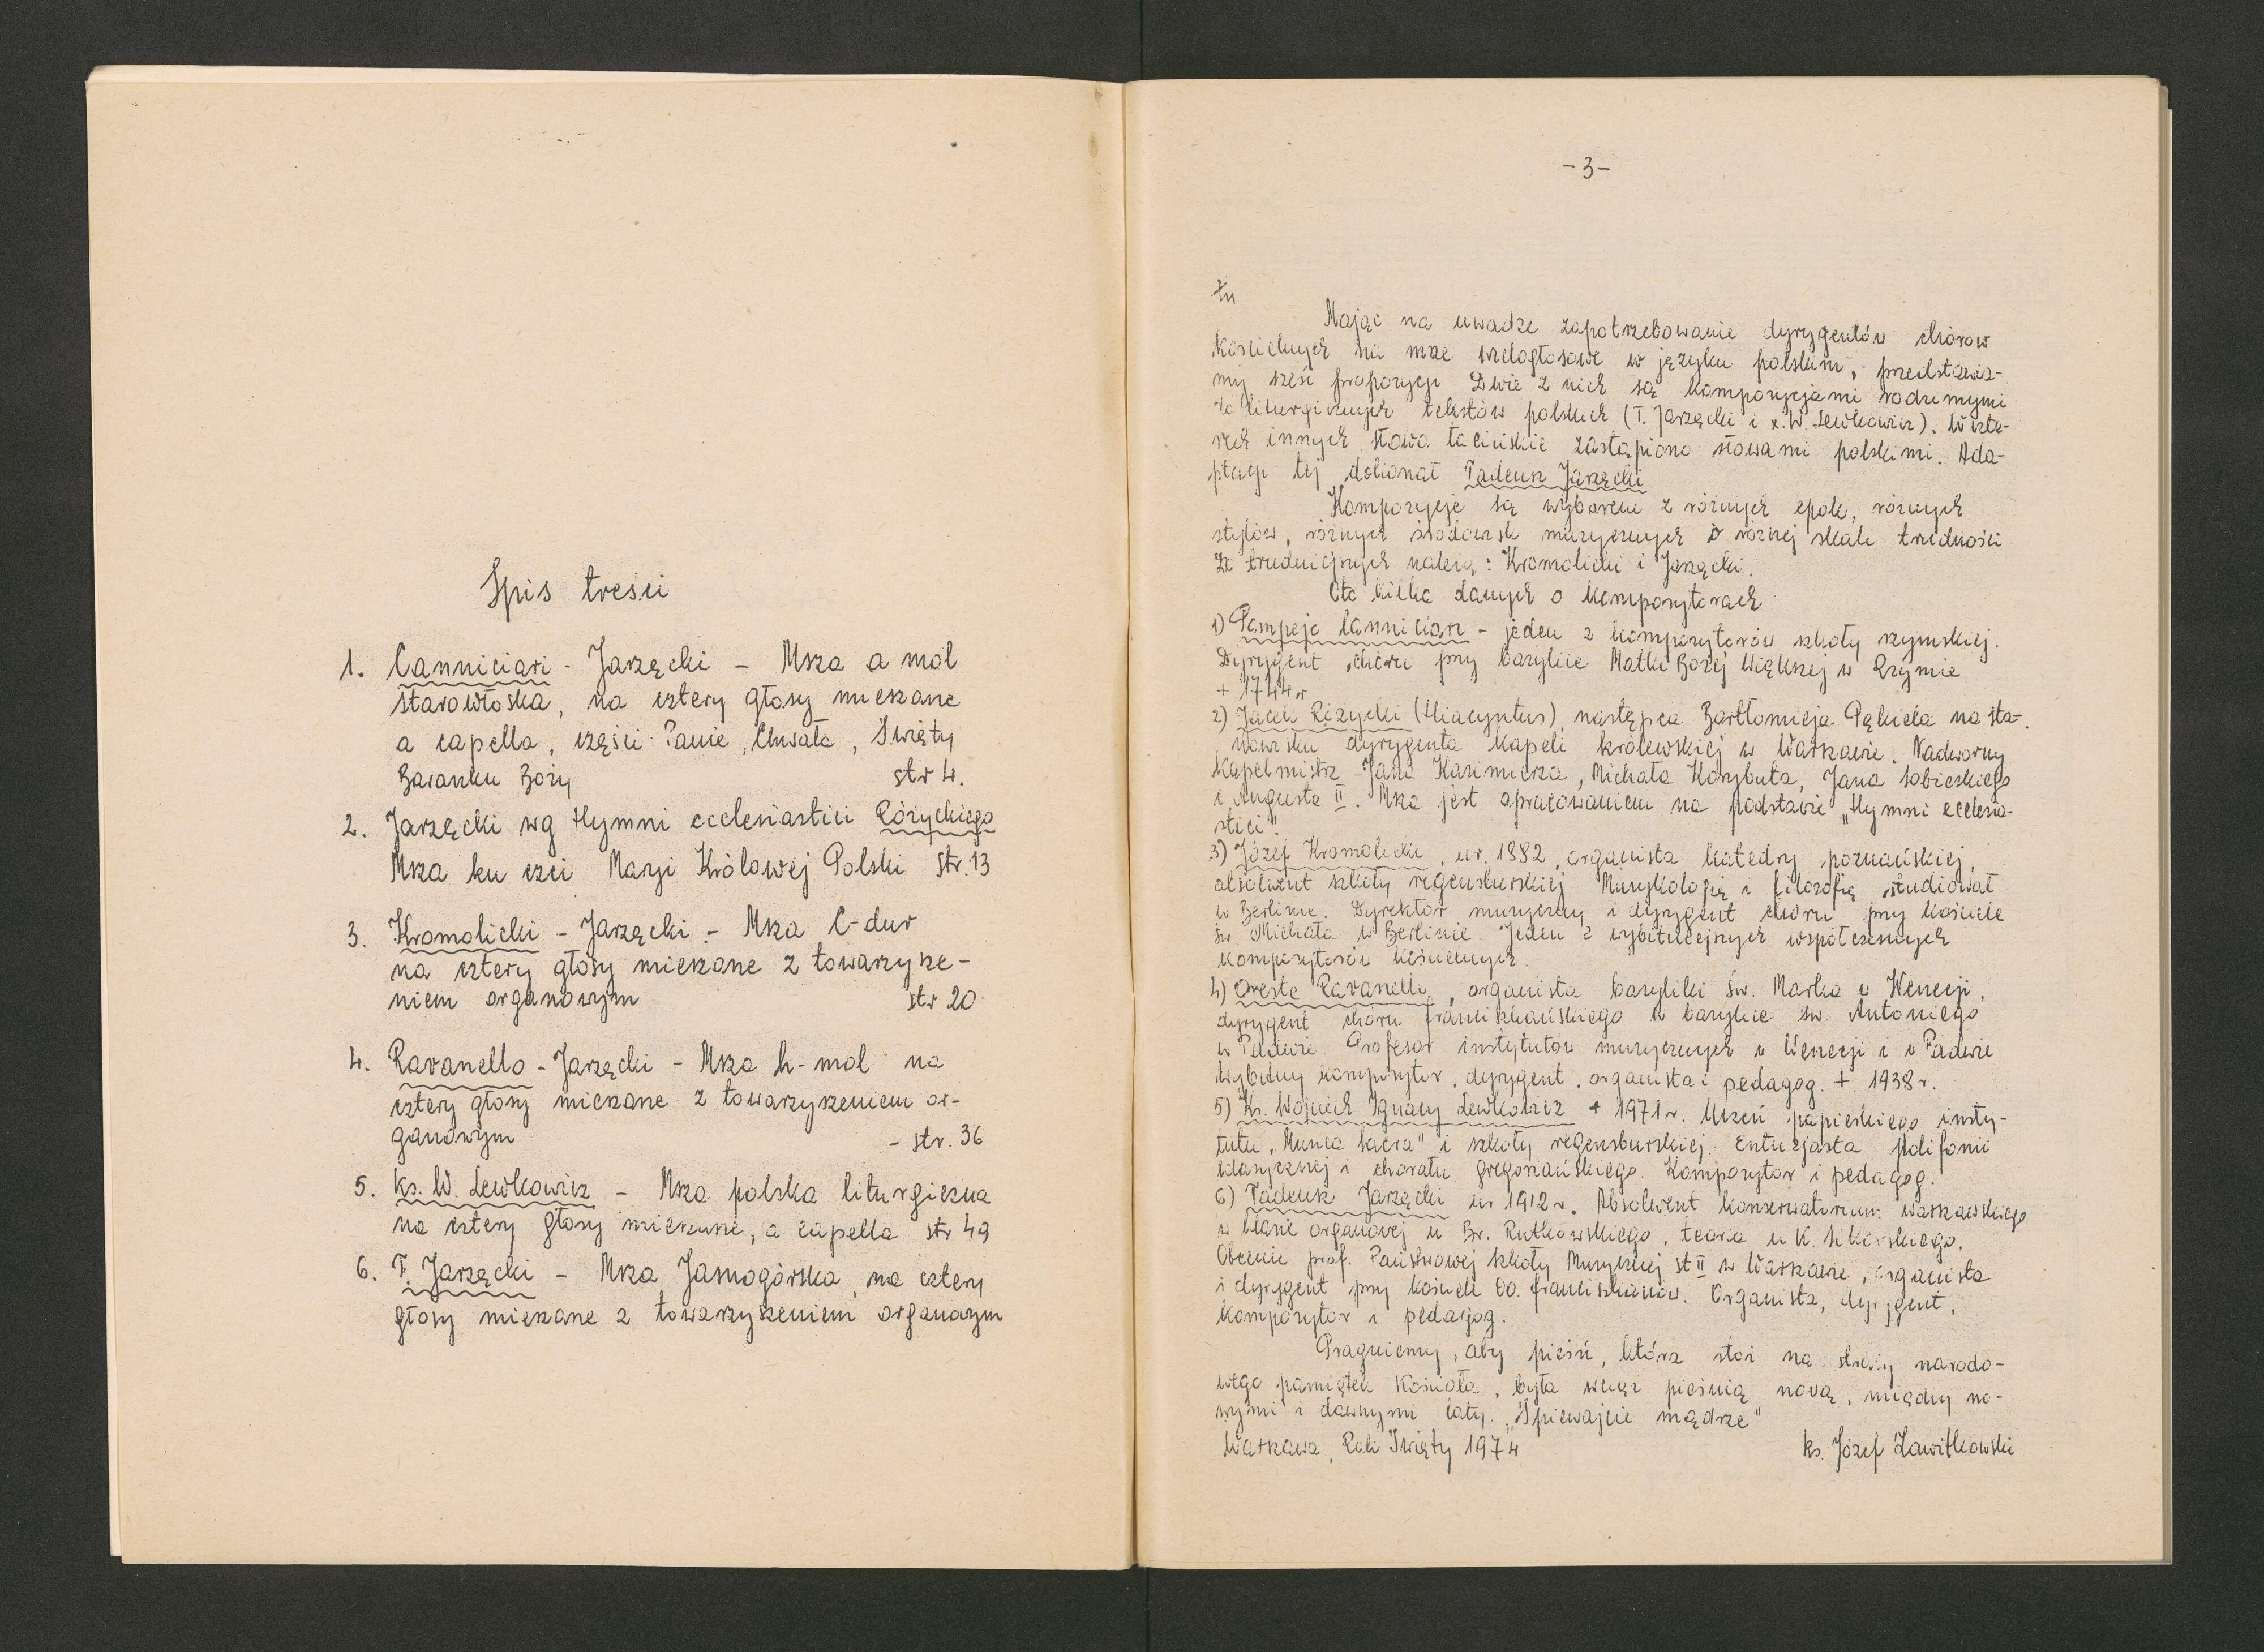 Spis treści
1. Canniciari - Jarzęcki - Msza a mol
starowłoska, na cztery głosy mieszane
a capella, części: Panie, Chwała, Święty
Baranku Boży str 4.
2. Jarzęcki wg Hymni ecclesiastici Różyckiego
Msza ku czci Maryi Królowej Polski str. 13
3. Kromolicki - Jarzęcki - Msza C-dur
na cztery głosy mieszane z towarzysze-
niem organowym str 20
4. Ravanello - Jarzęcki - Msza h-mol na
cztery głosy mieszane z towarzyszeniem or-
ganowym - str. 36
5. ks. W. Lewkowicz - Msza polska liturgiczna
na cztery głosy mieszane, a capella str 49
6. T. Jarzęcki - Msza Jasnogórska, na cztery
głosy mieszane z towarzyszeniem organowym
- 3 -
Mając na uwadze zapotrzebowanie dyrygentów chórów
kościelnych na msze wielogłosowe w języku polskim, przedstawia-
my sześć propozycji. Dwie z nich są kompozycjami rodzimymi
do liturgicznych tekstów polskich (T. Jarzęcki i x. W. Lewkowicz). W czte-
rech innych słowa łacińskie zastąpiono słowami polskimi. Ada-
ptacji tej dokonał Tadeusz Jarzęcki
Kompozycje są wyborem z różnych epok, różnych
stylów, różnych środowisk muzycznych o różnej skali trudności
Do trudniejszych należą: Kromolicki i Jarzęcki.
Oto kilka danych o kompozytorach
1) Pompejo Canniciari - jeden z kompozytorów szkoły rzymskiej.
Dyrygent chóru przy bazylice Matki Bożej Większej w Rzymie
+ 1744 r
2) Jacek Różycki (Hiacyntus), następca Bartłomieja Pękiela na sta-
nowisku dyrygenta kapeli królewskiej w Warszawie. Nadworny
kapelmistrz Jana Kazimierza, Michała Korybuta, Jana Sobieskiego
i Augusta II. Msza jest opracowaniem na podstawie „Hymni ecclesia-
stici".
3) Józef Kromolicki, ur. 1882, organista katedry poznańskiej,
absolwent szkoły regensburskiej. Muzykologię i filozofię studiował
w Berlinie. Dyrektor muzyczny i dyrygent chóru przy kościele
św. Michała w Berlinie. Jeden z wybitniejszych współczesnych
kompozytorów kościelnych.
4) Oreste Ravanello, organista bazyliki św. Marka w Wenecji,
dyrygent chóru franciszkańskiego w bazylice św. Antoniego
w Padwie. Profesor instytutów muzycznych w Wenecji i w Padwie
Wybitny kompozytor, dyrygent, organista i pedagog. + 1938 r.
5) Ks. Wojciech Ignacy Lewkowicz + 1971 r. Uczeń papieskiego insty-
tutu „Musica Sacra" i szkoły regensburskiej. Entuzjasta polifonii
klasycznej i chorału gregoriańskiego. Kompozytor i pedagog.
6) Tadeusz Jarzęcki ur 1912 r. Absolwent konserwatorium warszawskiego
w klasie organowej u Br. Rutkowskiego, teoria u K. Sikorskiego.
Obecnie prof. Państwowej Szkoły Muzycznej st II w Warszawie, organista
i dyrygent przy kościele OO. franciszkanów. Organista, dyrygent,
kompozytor i pedagog.
Pragniemy, aby pieśń, która stoi na straży narodo-
wego pamiątek Kościoła, była wciąż pieśnią nową, między no-
wymi i dawnymi laty. „Śpiewajcie mądrze"
Warszawa, Rok Święty 1974 ks. Józef Zawitkowski